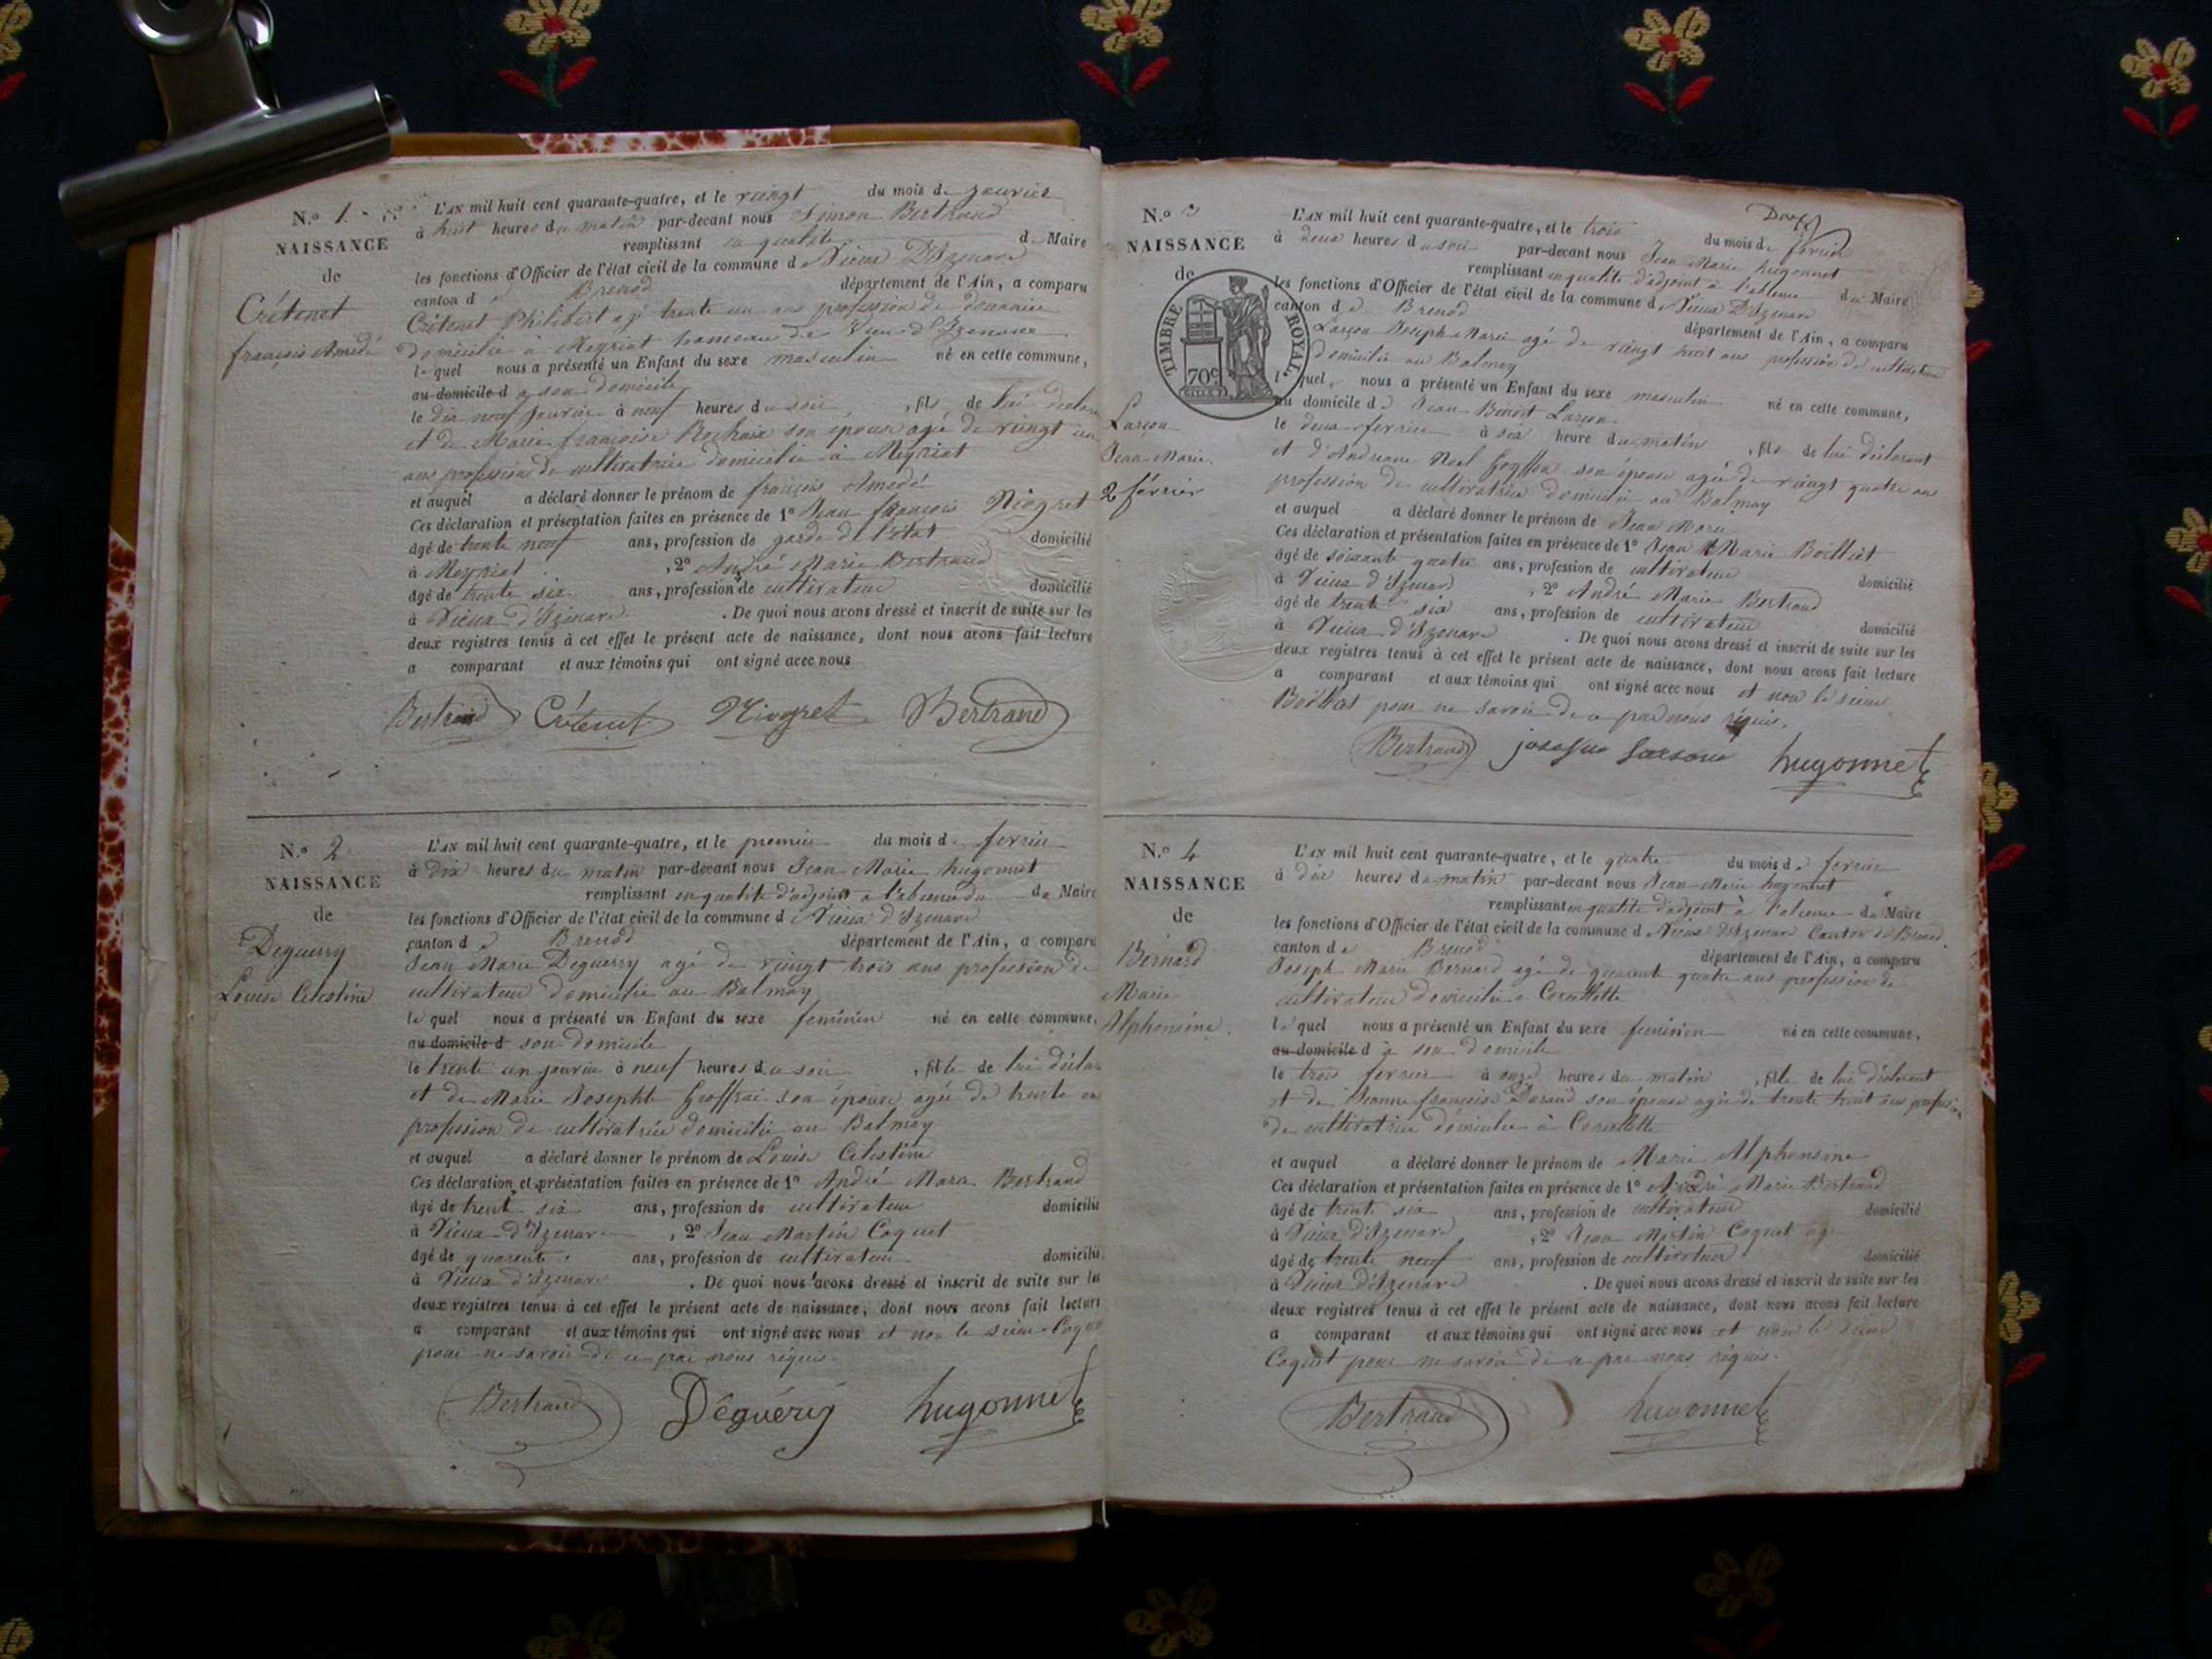 N.º 1.
NAISSANCE
de
Crétenet
françois Amedé
L'AN mil huit cent quarante-quatre, et le vingt du mois de janvier
à huit heures du matin par-devant nous Simon Bertrand
remplissant en qualité de Maire
les fonctions d'Officier de l'état civil de la commune de Vieux D'Izenave
canton de Brenod département de l'Ain, a comparu
Crétenet Philibert agé trente un ans profession de douanier
domicilié à Meyriat hameau de Vieu d'Izenave
lequel nous a présenté un Enfant du sexe masculin né en cette commune,
au domicile d à son domicile
le dix neuf janvier à neuf heures du soir, fils de lui
et de Marie françoise son epouse agé de vingt
ans profession de cultivatrice domicilié à Meyriat
et auquel a déclaré donner le prénom de françois Amedé
Ces déclaration et présentation faites en présence de 1º Jean françois Niogret
âgé de trente neuf ans, profession de garde de l'état domicilié
à Meyriat, 2º André Marie Bertrand
âgé de trente six ans, profession de cultivateur domicilié
à Vieux d'Izenave. De quoi nous avons dressé et inscrit de suite sur les
deux registres tenus à cet effet le présent acte de naissance, dont nous avons fait lecture
a comparant et aux témoins qui ont signé avec nous
Bertrand Crétenet Niogret Bertrand
N.º 2
NAISSANCE
de
Deguerry
Louise Celestine
L'AN mil huit cent quarante-quatre, et le premier du mois de fevrier
à dix heures du matin par-devant nous Jean Marie hugonnet
remplissant en qualité d'adjoint a l'absence du de Maire
les fonctions d'Officier de l'état civil de la commune de Vieux d'Izenave
canton de Brenod département de l'Ain, a comparu
Jean Marie Deguerry agé de vingt trois ans profession de
cultivateur domicilié au Balmay
lequel nous a présenté un Enfant du sexe feminin né en cette commune,
au domicile d son domicile
le trente un janvier à neuf heures du soir, fille de lui
et de Marie Josephte Groffrai son épouse agée de trente
profession de cultivatrice domicilié au Balmay
et auquel a déclaré donner le prénom de Louise Celestine
Ces déclaration et présentation faites en présence de 1º André Marie Bertrand
âgé de trent six ans, profession de cultivateur domicilié
à Vieux d'Izenave, 2º Jean Martin Coquet
âgé de quarente ans, profession de cultivateur domicilié
à Vieux d'Izenave. De quoi nous avons dressé et inscrit de suite sur les
deux registres tenus à cet effet le présent acte de naissance, dont nous avons fait lecture
a comparant et aux témoins qui ont signé avec nous et non le sieur Coquet
pour ne savoir de ce par nous réquis
Bertrand Déguéry hugonnet
N.º 3
NAISSANCE
de
TIMBRE ROYAL.
70c
Larçon
Jean Marie.
2 février
L'AN mil huit cent quarante-quatre, et le trois du mois de fevrier
à deux heures du soir par-devant nous Jean Marie hugonnet
remplissant en qualité d'adjoint à l'absence du Maire
les fonctions d'Officier de l'état civil de la commune de Vieux D'Izenave
canton de Brenod département de l'Ain, a comparu
Larçon Joseph Marie agé de vingt huit ans profession de cultivateur
domicilié au Balmay
lequel, nous a présenté un Enfant du sexe masculin né en cette commune,
au domicile de Jean Benoit Larçon
le deux fevrier à six heure du matin, fils de lui déclarant
et d'Andreane son épouse agée de vingt quatre ans
profession de cultivatrice domicilié au Balmay
et auquel a déclaré donner le prénom de Jean Marie
Ces déclaration et présentation faites en présence de 1º Jean Marie Boilliat
âgé de soixante quatre ans, profession de cultivateur domicilié
à Vieux d'Izenave, 2º André Marie Bertrand
âgé de trente six ans, profession de cultivateur domicilié
à Vieux d'Izenave. De quoi nous avons dressé et inscrit de suite sur les
deux registres tenus à cet effet le présent acte de naissance, dont nous avons fait lecture
a comparant et aux témoins qui ont signé avec nous et non le sieur
Boilliat pour ne savoir de ce par nous réquis.
Bertrand hugonnet
N.º 4
NAISSANCE
de
Bernard
Marie
Alphonsine.
L'AN mil huit cent quarante-quatre, et le quatre du mois de fevrier
à dix heures du matin par-devant nous Jean Marie hugonnet
remplissant en qualité d'adjoint à l'absence du Maire
les fonctions d'Officier de l'état civil de la commune de Vieux d'Izenave Canton de Brenod
canton de Brenod département de l'Ain, a comparu
Joseph Marie Bernard agé de quarante quatre ans profession de
cultivateur domicilié a
lequel nous a présenté un Enfant du sexe feminin né en cette commune,
au domicile d à son domicile
le trois fevrier à onze heures du matin, fille de lui déclarant
et de Jeanne françoise son épouse agée de trente huit ans profession
de cultivatrice domicilié à
et auquel a déclaré donner le prénom de Marie Alphonsine
Ces déclaration et présentation faites en présence de 1º André Marie Bertrand
âgé de trente six ans, profession de cultivateur domicilié
à Vieux d'Izenave, 2º Jean Martin Coquet
âgé de trente neuf ans, profession de cultivateur domicilié
à Vieux d'Izenave. De quoi nous avons dressé et inscrit de suite sur les
deux registres tenus à cet effet le présent acte de naissance, dont nous avons fait lecture
a comparant et aux témoins qui ont signé avec nous et non le sieur
Coquet pour ne savoir de ce par nous réquis.
Bertrand hugonnet